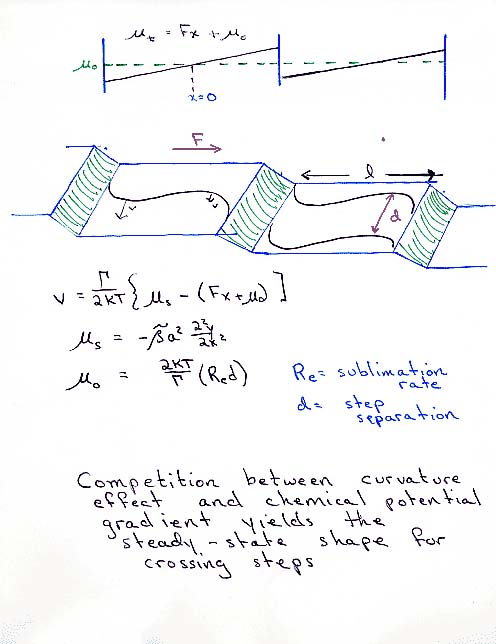 μt = Fx + μo
μo
x=0
F
l
v
v
d
v = Γ/2kT { μs - (Fx+μo) ]
μs = -β̃a² ∂²y/∂x²
μo = 2kT/Γ (Red)
Re = sublimation
rate
d = step
separation
Competition between curvature
effect and chemical potential
gradient yields the
steady-state shape for
crossing steps